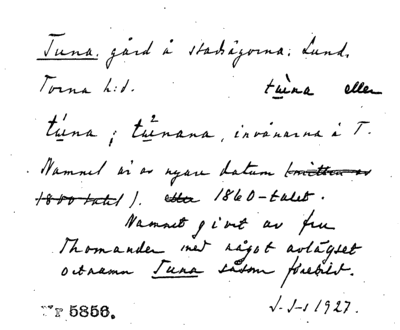 Tuna, gård å stadsägorna. Lund,
Torna h:d. tùna eller
túna ; tùnana, invånarna å T.
Namnet är av nyare datum (mitten av
1800 talet). efter 1860-talet.
Namnet givet av fru
Thomander med något avlägset
ortnamn Tuna såsom förebild.
5856. J. S-s 1927.